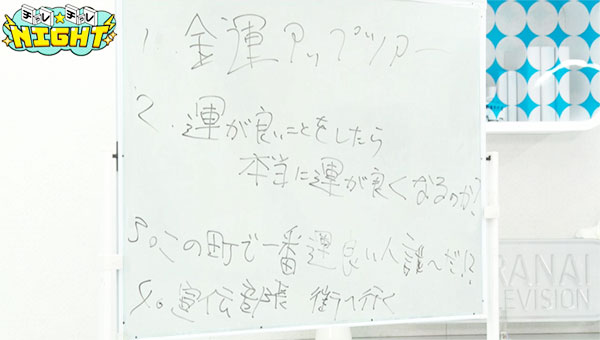 チャレ★チャレ
NIGHT
1. 金運アップツアー
2. 運が良いことをしたら
本当に運が良くなるのか?
3。この町で一番運良い人誰べだ!?
5。宣伝部長 街へ行く
RANAI
EVISION